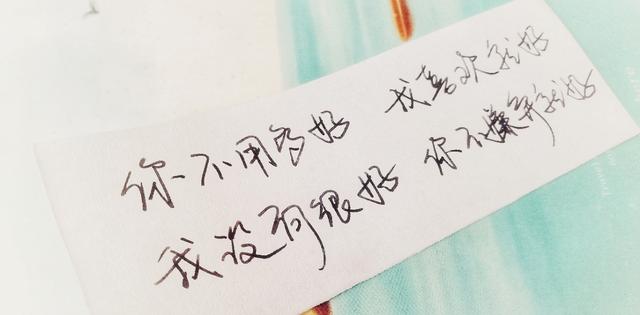 你不用多好 我喜欢就好
我没有很好 你不嫌弃就好